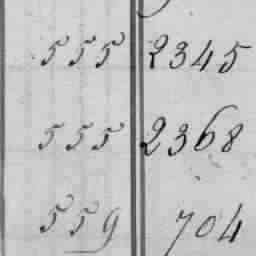 555 2345
555 2368
559 704